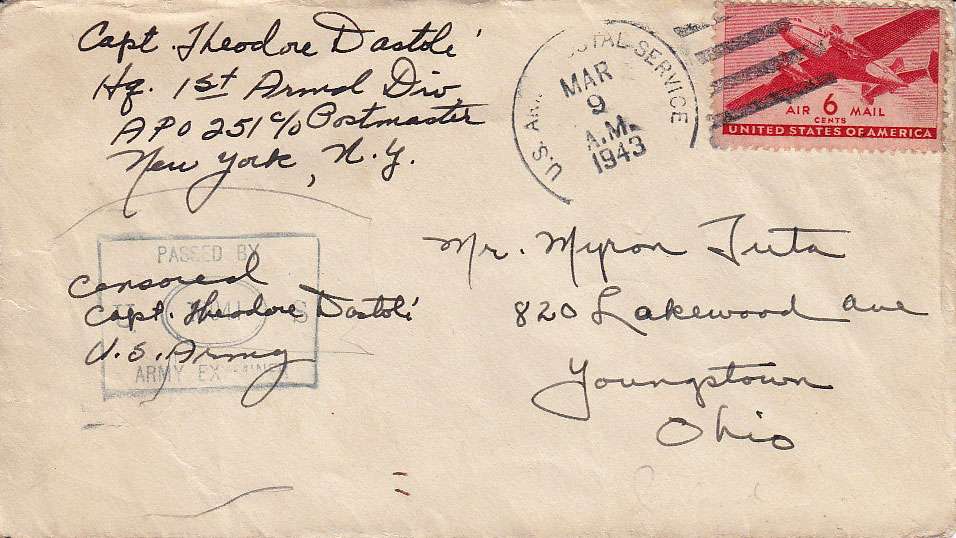 Capt. Theodore Dastoli
Hq. 1st Armd Div
APO 251 c/o Postmaster
New York, N.Y.
U.S. POSTAL SERVICE
MAR
9
A.M.
1943
AIR 6 MAIL
CENTS
UNITED STATES OF AMERICA
PASSED BY
U S
ARMY EXAMINER
Censored
Capt. Theodore Dastoli
U.S. Army
Mr. Myron Tuta
820 Lakewood Ave
Youngstown
Ohio